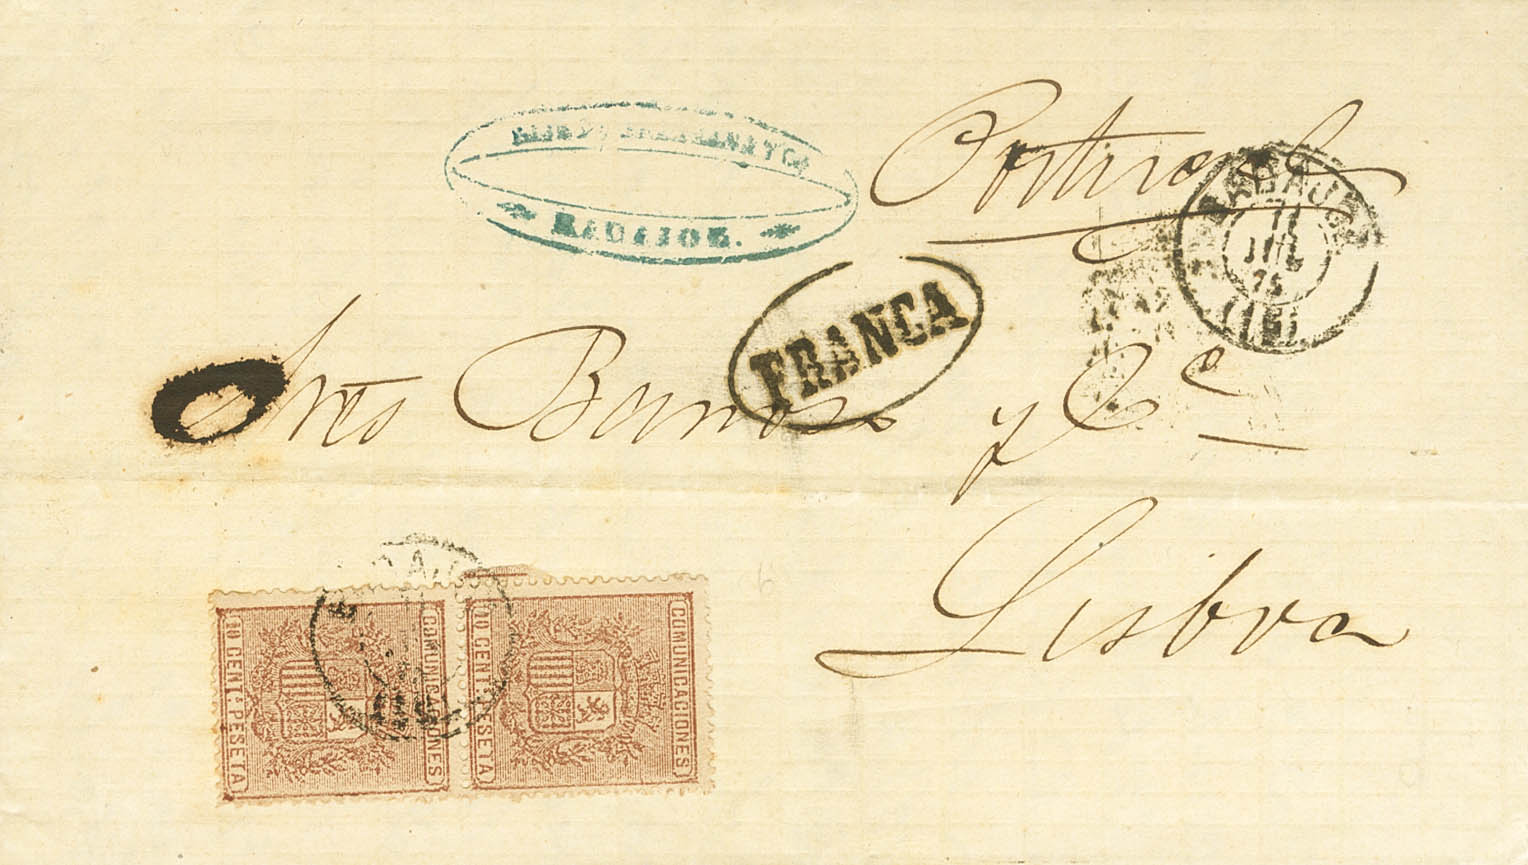 Portugal
BADAJOZ.
BADAJOZ
11
JUL
75
FRANCA
Sres Banos y Ca
Lisboa
10 CENT.s PESETA
COMUNICACIONES
10 CENT.s PESETA
COMUNICACIONES